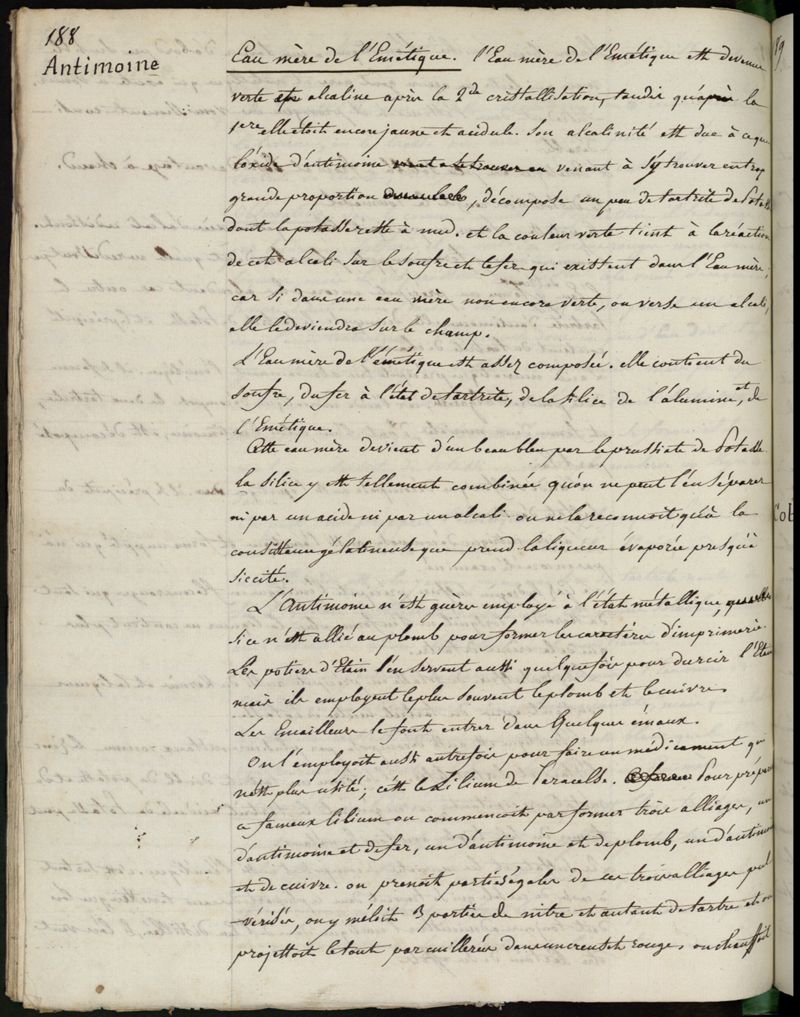 188
Antimoine
Eau mère de l'Emétique. l'Eau mère de l'Emétique est devenue
verte et alcaline après la 2de cristallisation, tandis qu'après la
1ere elle étoit encore jaune et acidule. Son alcalinité est due à ce que
l'oxide d'antimoine venant à s'y trouver en trop
grande proportion, décompose un peu de tartrite de Potasse
dont la potasse reste à nud. et la couleur verte tient à la réaction
de cet alcali sur le soufre et le fer qui existent dans l'Eau mère,
car si dans une eau mère non encore verte, on verse un alcali,
elle le deviendra sur le champ.
L'Eau mère de l'émétique est assez composée. elle contient du
soufre, du fer à l'état de tartrite, de la silice de l'alumine, et de
l'Emétique.
Cette eau mère devient d'un beau bleu par le prussiate de Potasse
la silice y est tellement combinée qu'on ne peut l'en séparer
ni par un acide ni par un alcali on ne la reconnoit qu'à la
consistance gélatineuse que prend la liqueur évaporée presqu'à
siccité.
L'Antimoine n'est guères employé à l'état métallique,
si ce n'est allié au plomb pour former les caractères d'imprimerie.
Les potiers d'Etain s'en servent aussi quelquefois pour durcir l'Etain
mais ils employent le plus souvent le plomb et le cuivre.
Les Emailleurs le font entrer dans quelques émaux.
On l'employoit aussi autrefois pour faire un médicament qui
n'est plus usité; c'est le Lilium de Paracelse. Pour préparer
ce fameux lilium on commencoit par former trois alliages, un
d'antimoine et de fer, un d'antimoine et de plomb, un d'antimoine
et de cuivre. on prenoit parties égales de ces trois alliages pul-
-vérisés, on y mêloit 3 parties de nitre et autant de tartre et on
projettoit le tout par cuillerées dans un creuset rouge, on chauffoit